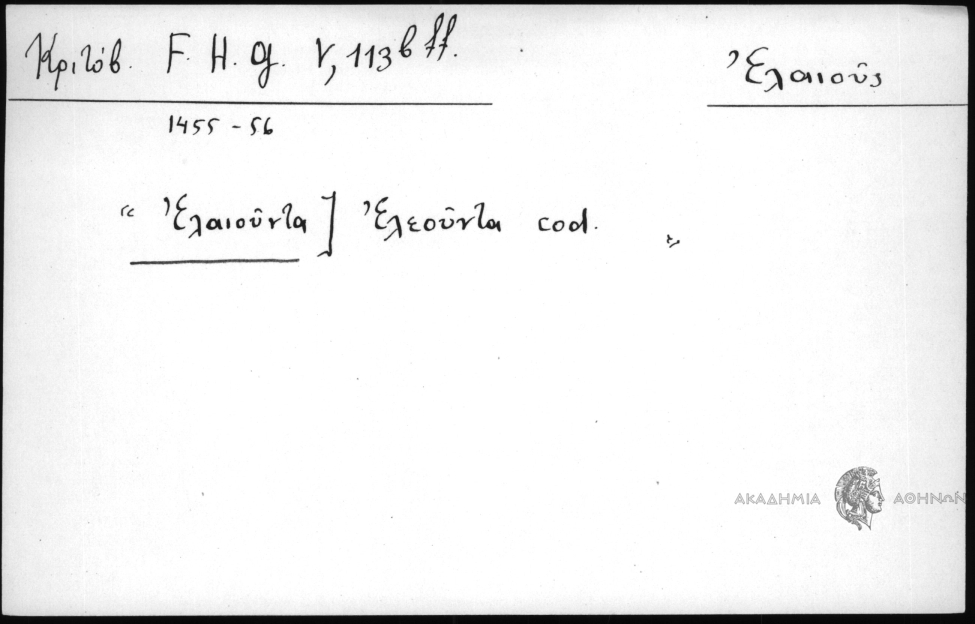 Κριτόβ. F. H. G. V, 113 b ff.
Ἐλαιοῦς
1455 - 56
" Ἐλαιοῦντα ] Ἐλεοῦντα cod. "
ΑΚΑΔΗΜΙΑ ΑΘΗΝΩΝ